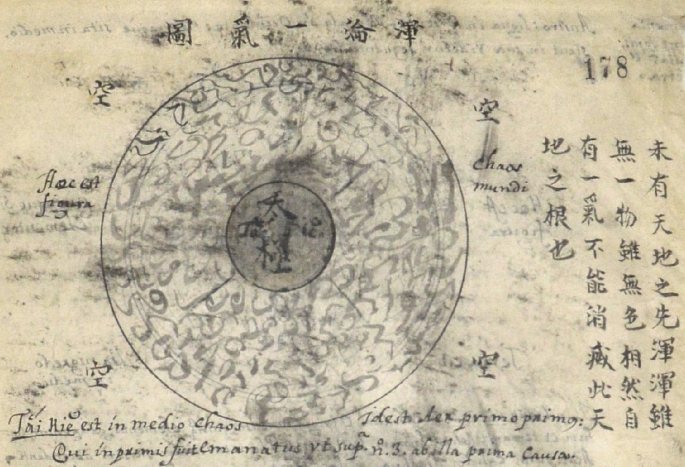 渾淪一氣圖
178
空
空
未有天地之先渾渾雖
無一物雖無色相然自
有一氣不能消滅此天
地之根也
Hæc est
figura
chaos
mundi
太極
空
空
Tái Kiĕ est in medio chaos
Idest Aer primo primq:
Qui inprimis fuit Emanatus vt supᵃ. n. 3. ab illa prima Causa.